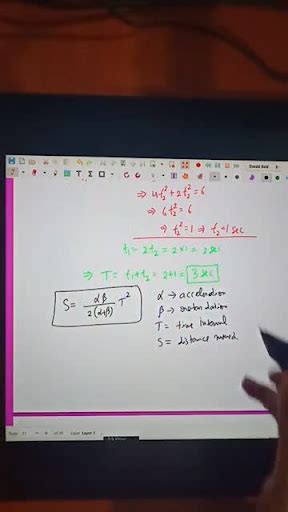 ⇒ 4t₂² + 2t₂² = 6
⇒ 6t₂² = 6
⇒ t₂² = 1 ⇒ t₂ = 1 sec
t₁ = 2t₂ = 2×1 = 2 sec
⇒ T = t₁ + t₂ = 2+1 = 3 sec
S = αβ / 2(α+β) T²
α → acceleration
β → retardation
T = time interval
S = distance moved
Layer 1